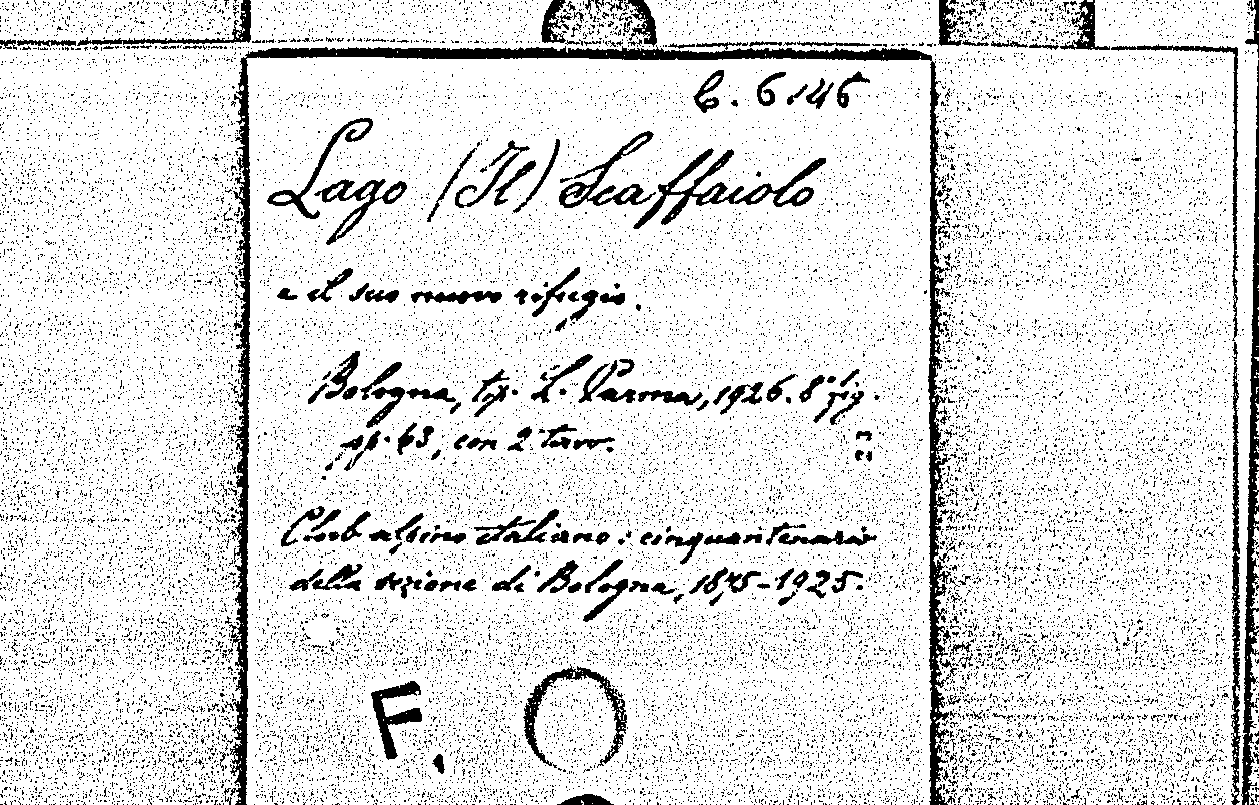 C. 6146
Lago (Il) Scaffaiolo
e il suo nuovo rifugio.
Bologna, tip. L. Parma, 1926. 8° fig.
pp. 63, con 2 tavv.
Club alpino italiano: cinquantenario
della sezione di Bologna, 1875-1925.
F.